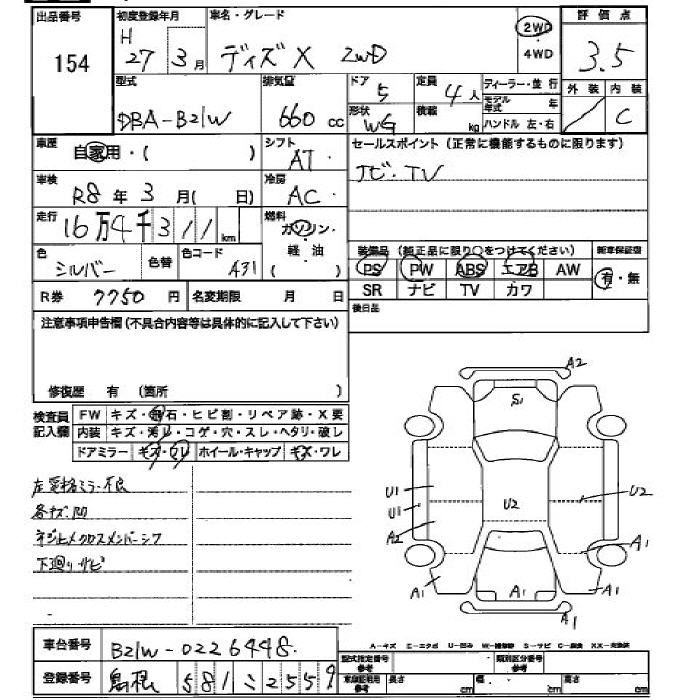 出品番号 初度登録年月 車名・グレード 2WD 評価点
154 H 27年3月 ディズ X 2WD 4WD 3.5
型式 排気量 ドア 5 定員 4人 ディーラー・並行 外装 内装
DBA-B21W 660cc 形状 WG 積載 kg モデル年式 年 ／ C
ハンドル 左・右
車歴 自家用・( ) シフト AT セールスポイント(正常に機能するものに限ります)
車検 R8年3月( 日) 冷房 AC ナビ・TV
走行 16万4千311km 燃料 ガソリン・軽・油 ( )
色 シルバー 色替 色コード A31 装備品(純正品に限り○をつけてください) 新車保証書
PS PW ABS エアB AW 有・無
R券 7750円 名変期限 月 日 SR ナビ TV カワ
注意事項申告欄(不具合内容等は具体的に記入して下さい) 後日品
修復歴 有 (箇所 )
検査員記入欄 FW キズ・飛石・ヒビ割・リペア跡・X要
内装 キズ・汚レ・コゲ・穴・スレ・ヘタリ・破レ
ドアミラー キズ・ワレ ホイール・キャップ キズ・ワレ
左電格ミラー不良
各キズ凹
ネジ止メクロスメンバーシフ
下廻リサビ
A2
S1
U1 U2 U2
U1
A2 A1
A1 A1 A1
A1
A-キズ E-エクボ U-凹み W-補修跡 S-サビ C-腐食 XX-交換済
車台番号 B21W-0226448
型式指定番号 参考 類別区分番号 参考
登録番号 島根 581 に 2559
車検証記載 参考 長さ cm 幅 cm 高さ cm